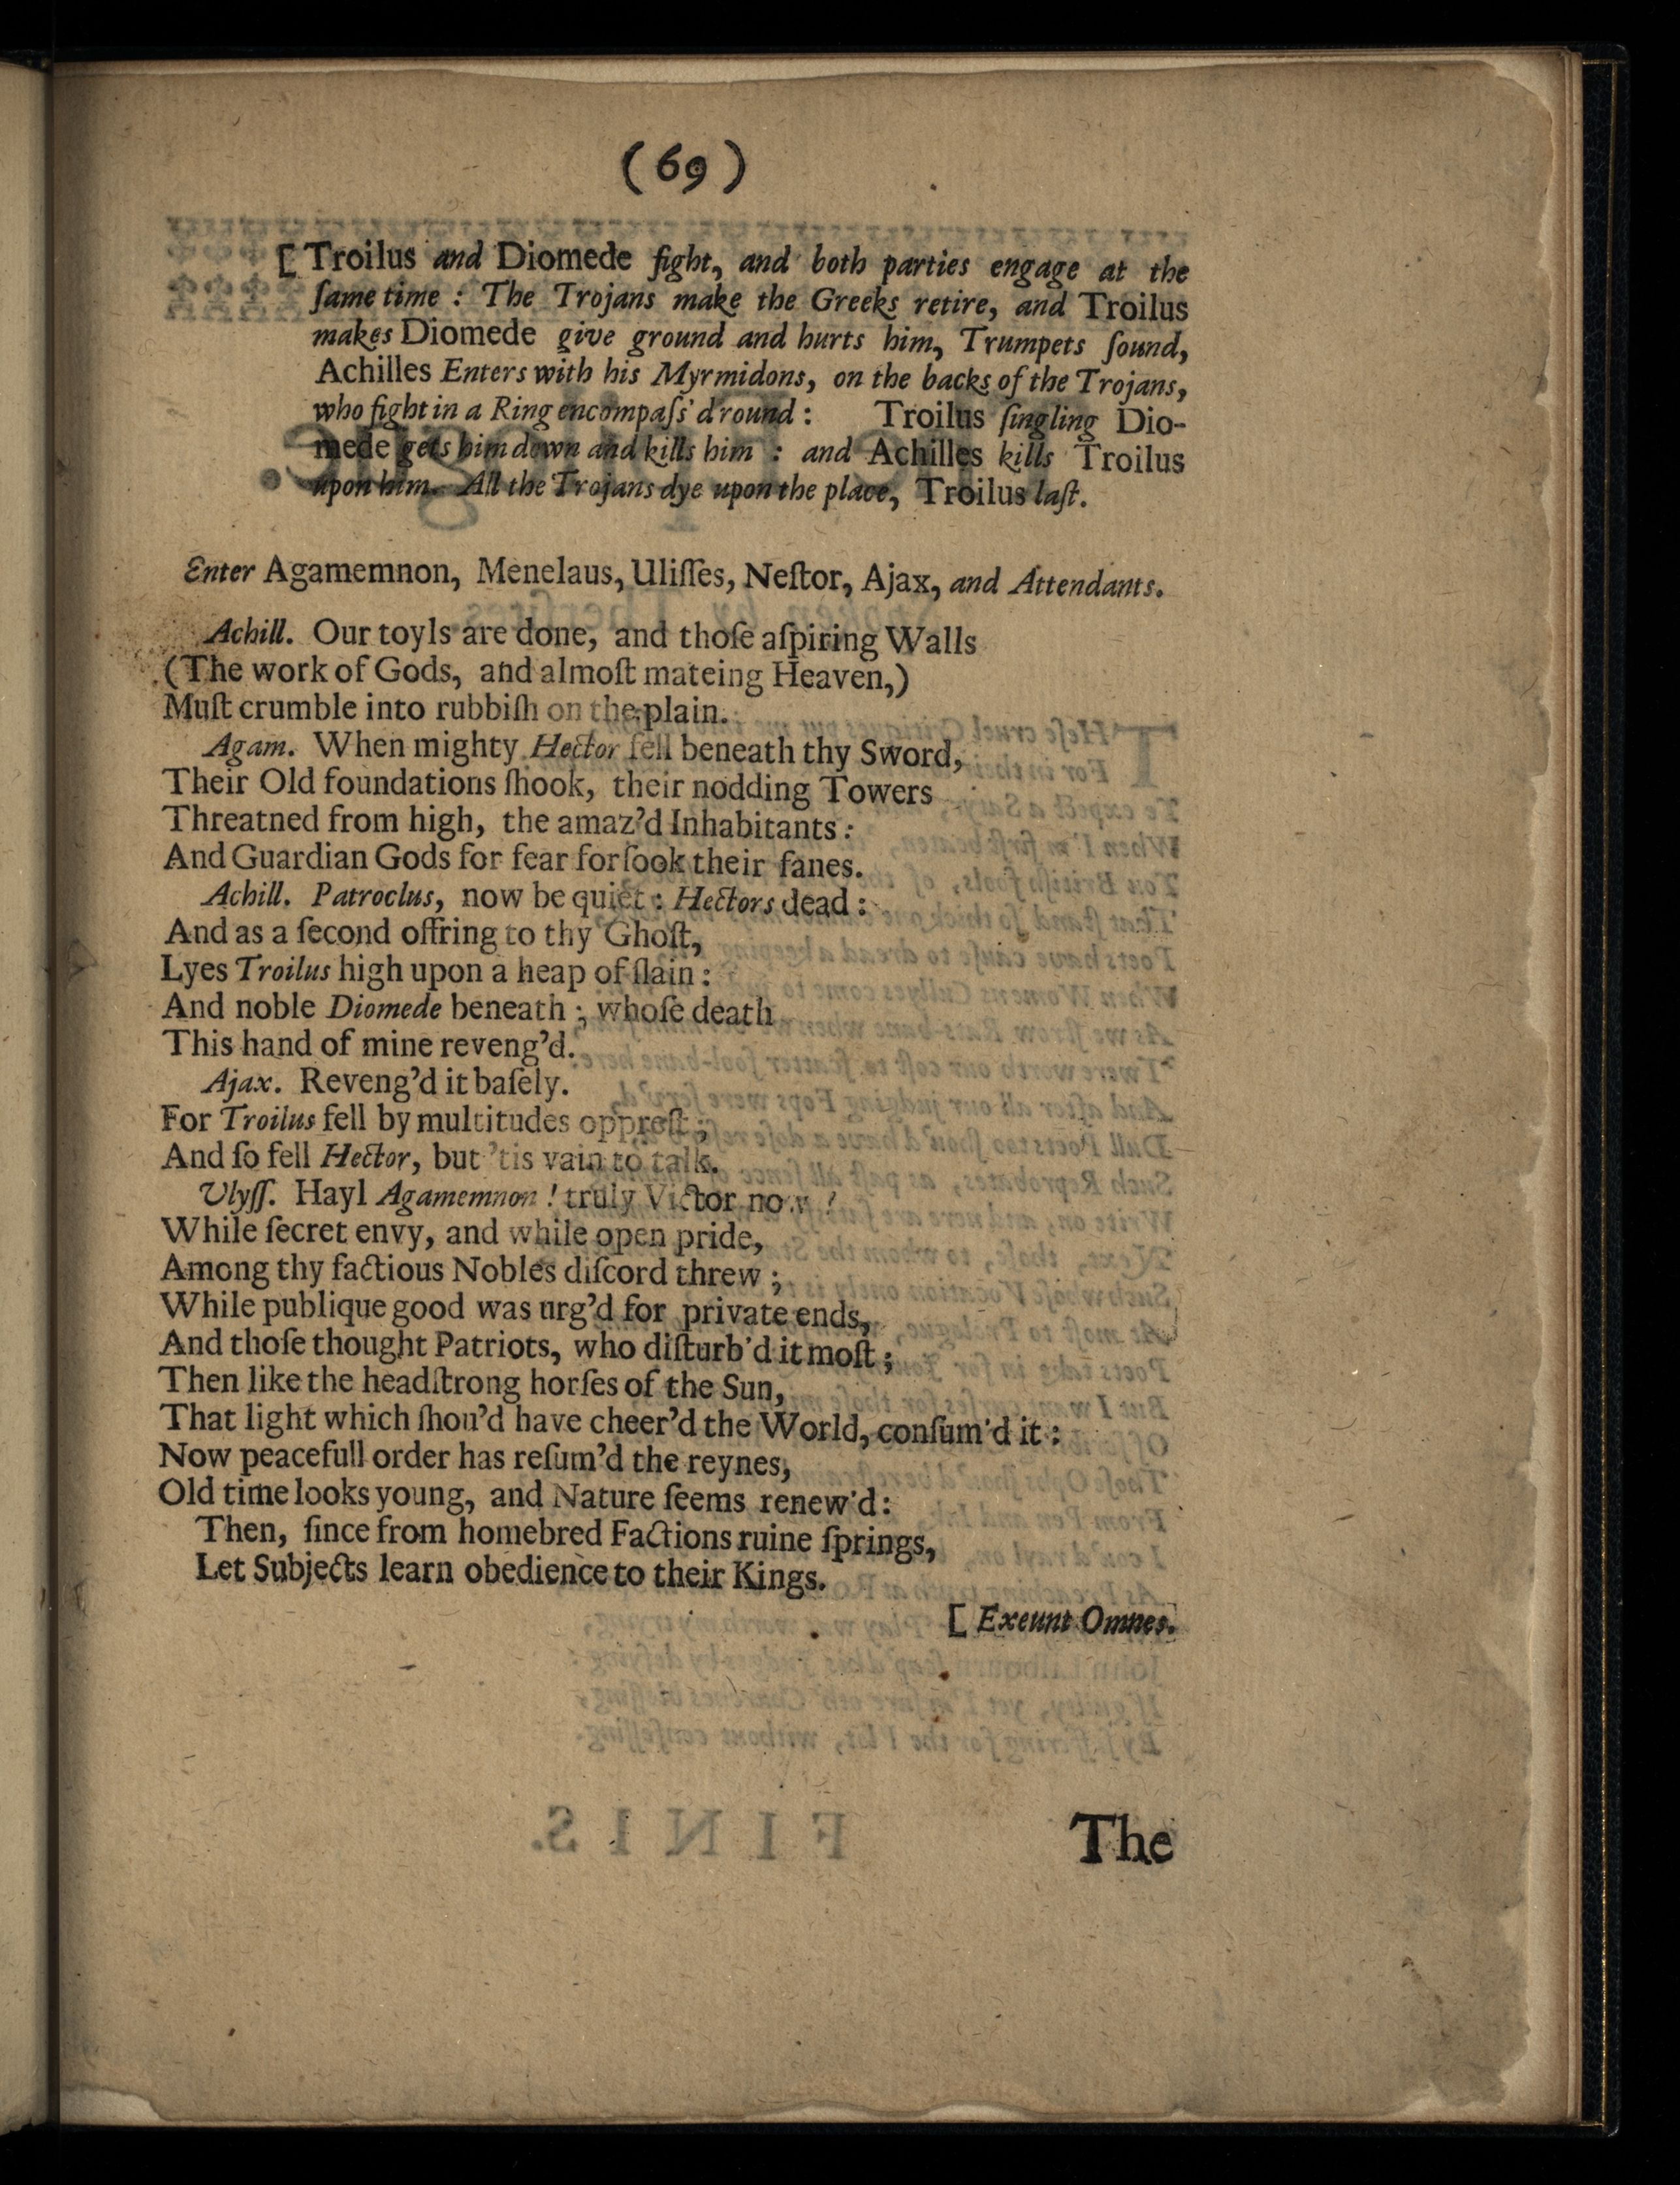 (69)
[Troilus and Diomede fight, and both parties engage at the
ſame time : The Trojans make the Greeks retire, and Troilus
makes Diomede give ground and hurts him, Trumpets ſound,
Achilles Enters with his Myrmidons, on the backs of the Trojans,
who fight in a Ring encompaſs'd round : Troilus ſingling Dio-
mede gets him down and kills him : and Achilles kills Troilus
upon him. All the Trojans dye upon the place, Troilus laſt.
Enter Agamemnon, Menelaus, Uliſſes, Neſtor, Ajax, and Attendants.
Achill. Our toyls are done, and thoſe aſpiring Walls
(The work of Gods, and almoſt mateing Heaven,)
Muſt crumble into rubbiſh on the plain.
Agam. When mighty Hector fell beneath thy Sword,
Their Old foundations ſhook, their nodding Towers
Threatned from high, the amaz'd Inhabitants :
And Guardian Gods for fear forſook their fanes.
Achill. Patroclus, now be quiet : Hectors dead :
And as a ſecond offring to thy Ghoſt,
Lyes Troilus high upon a heap of ſlain :
And noble Diomede beneath ; whoſe death
This hand of mine reveng'd.
Ajax. Reveng'd it baſely.
For Troilus fell by multitudes oppreſt ;
And ſo fell Hector, but 'tis vain to talk.
Ulyſſ. Hayl Agamemnon ! truly Victor now !
While ſecret envy, and while open pride,
Among thy factious Nobles diſcord threw ;
While publique good was urg'd for private ends,
And thoſe thought Patriots, who diſturb'd it moſt ;
Then like the headſtrong horſes of the Sun,
That light which ſhou'd have cheer'd the World, conſum'd it :
Now peacefull order has reſum'd the reynes,
Old time looks young, and Nature ſeems renew'd :
Then, ſince from homebred Factions ruine ſprings,
Let Subjects learn obedience to their Kings.
[Exeunt Omnes.
The